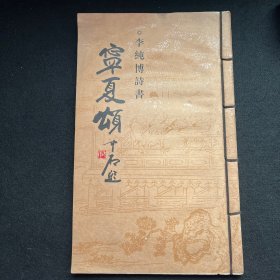 李純博詩書
寧夏頌